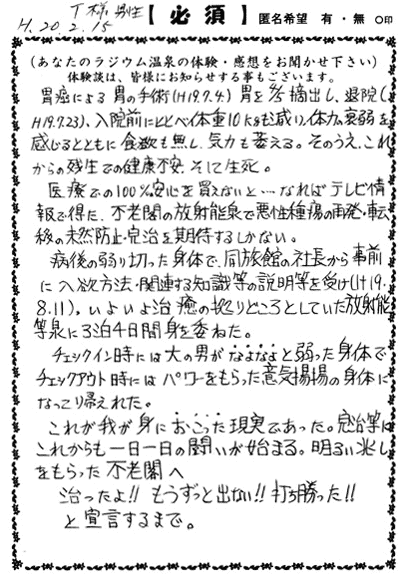 T様 男性
H.20.2.15
【必須】 匿名希望 有・無 ○印
(あなたのラジウム温泉の体験・感想をお聞かせ下さい)
体験談は、皆様にお知らせする事もございます。
胃癌による胃の手術(H19.7.4.)胃を 摘出し、退院(
H19.7.23)、入院前にくらべ体重10kgも減り、体力衰弱を
感じるとともに食欲も無し、気力も萎える。そのうえ、これ
からの残生での健康不安、そして生死。
医療での100%安心を買えないと…なればテレビ情
報で得た、不老閣の放射能泉で悪性腫瘍の再発・転
移の未然防止・完治を期待するしかない。
病後の弱り切った身体で、同旅館の社長から事前
に入欲方法・関連する知識等の説明等を受け(H19.
8.11)、いよいよ治癒の拠りどころとしていた放射能
等泉に3泊4日間身を委ねた。
チェックイン時には大の男がなよなよと弱った身体で
チェックアウト時にはパワーをもらった意気揚揚の身体に
なってり帰えれた。
これが我が身におこった現実であった。完治等は
これからも一日一日の闘いが始まる。明るい兆し
をもらった不老閣へ
治ったよ!! もうずっと出ない!! 打ち勝った!!
と宣言するまで。